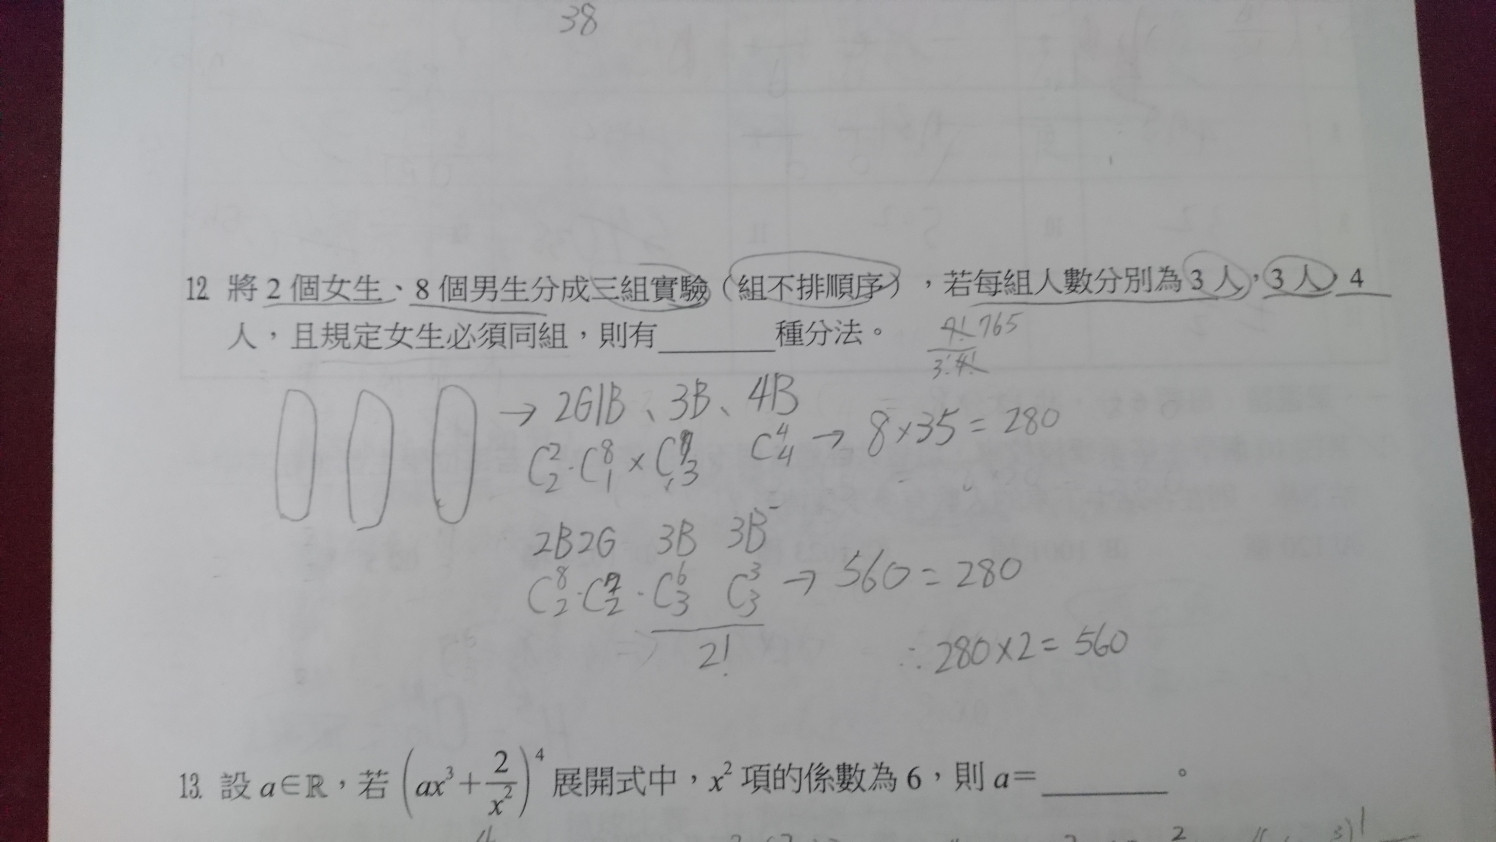 38
12 將 2 個女生、8 個男生分成三組實驗(組不排順序),若每組人數分別為 3 人,3 人,4
人,且規定女生必須同組,則有________種分法。
7!765
3!4!
→ 2G1B、3B、4B
C²₂·C⁸₁×C⁷₃ C⁴₄ → 8×35=280
2B2G 3B 3B
C⁸₂·C²₂·C⁶₃ C³₃ → 560=280
2!
∴280×2=560
13. 設 a∈ℝ,若 (ax³+2/x²)⁴ 展開式中,x² 項的係數為 6,則 a=________。